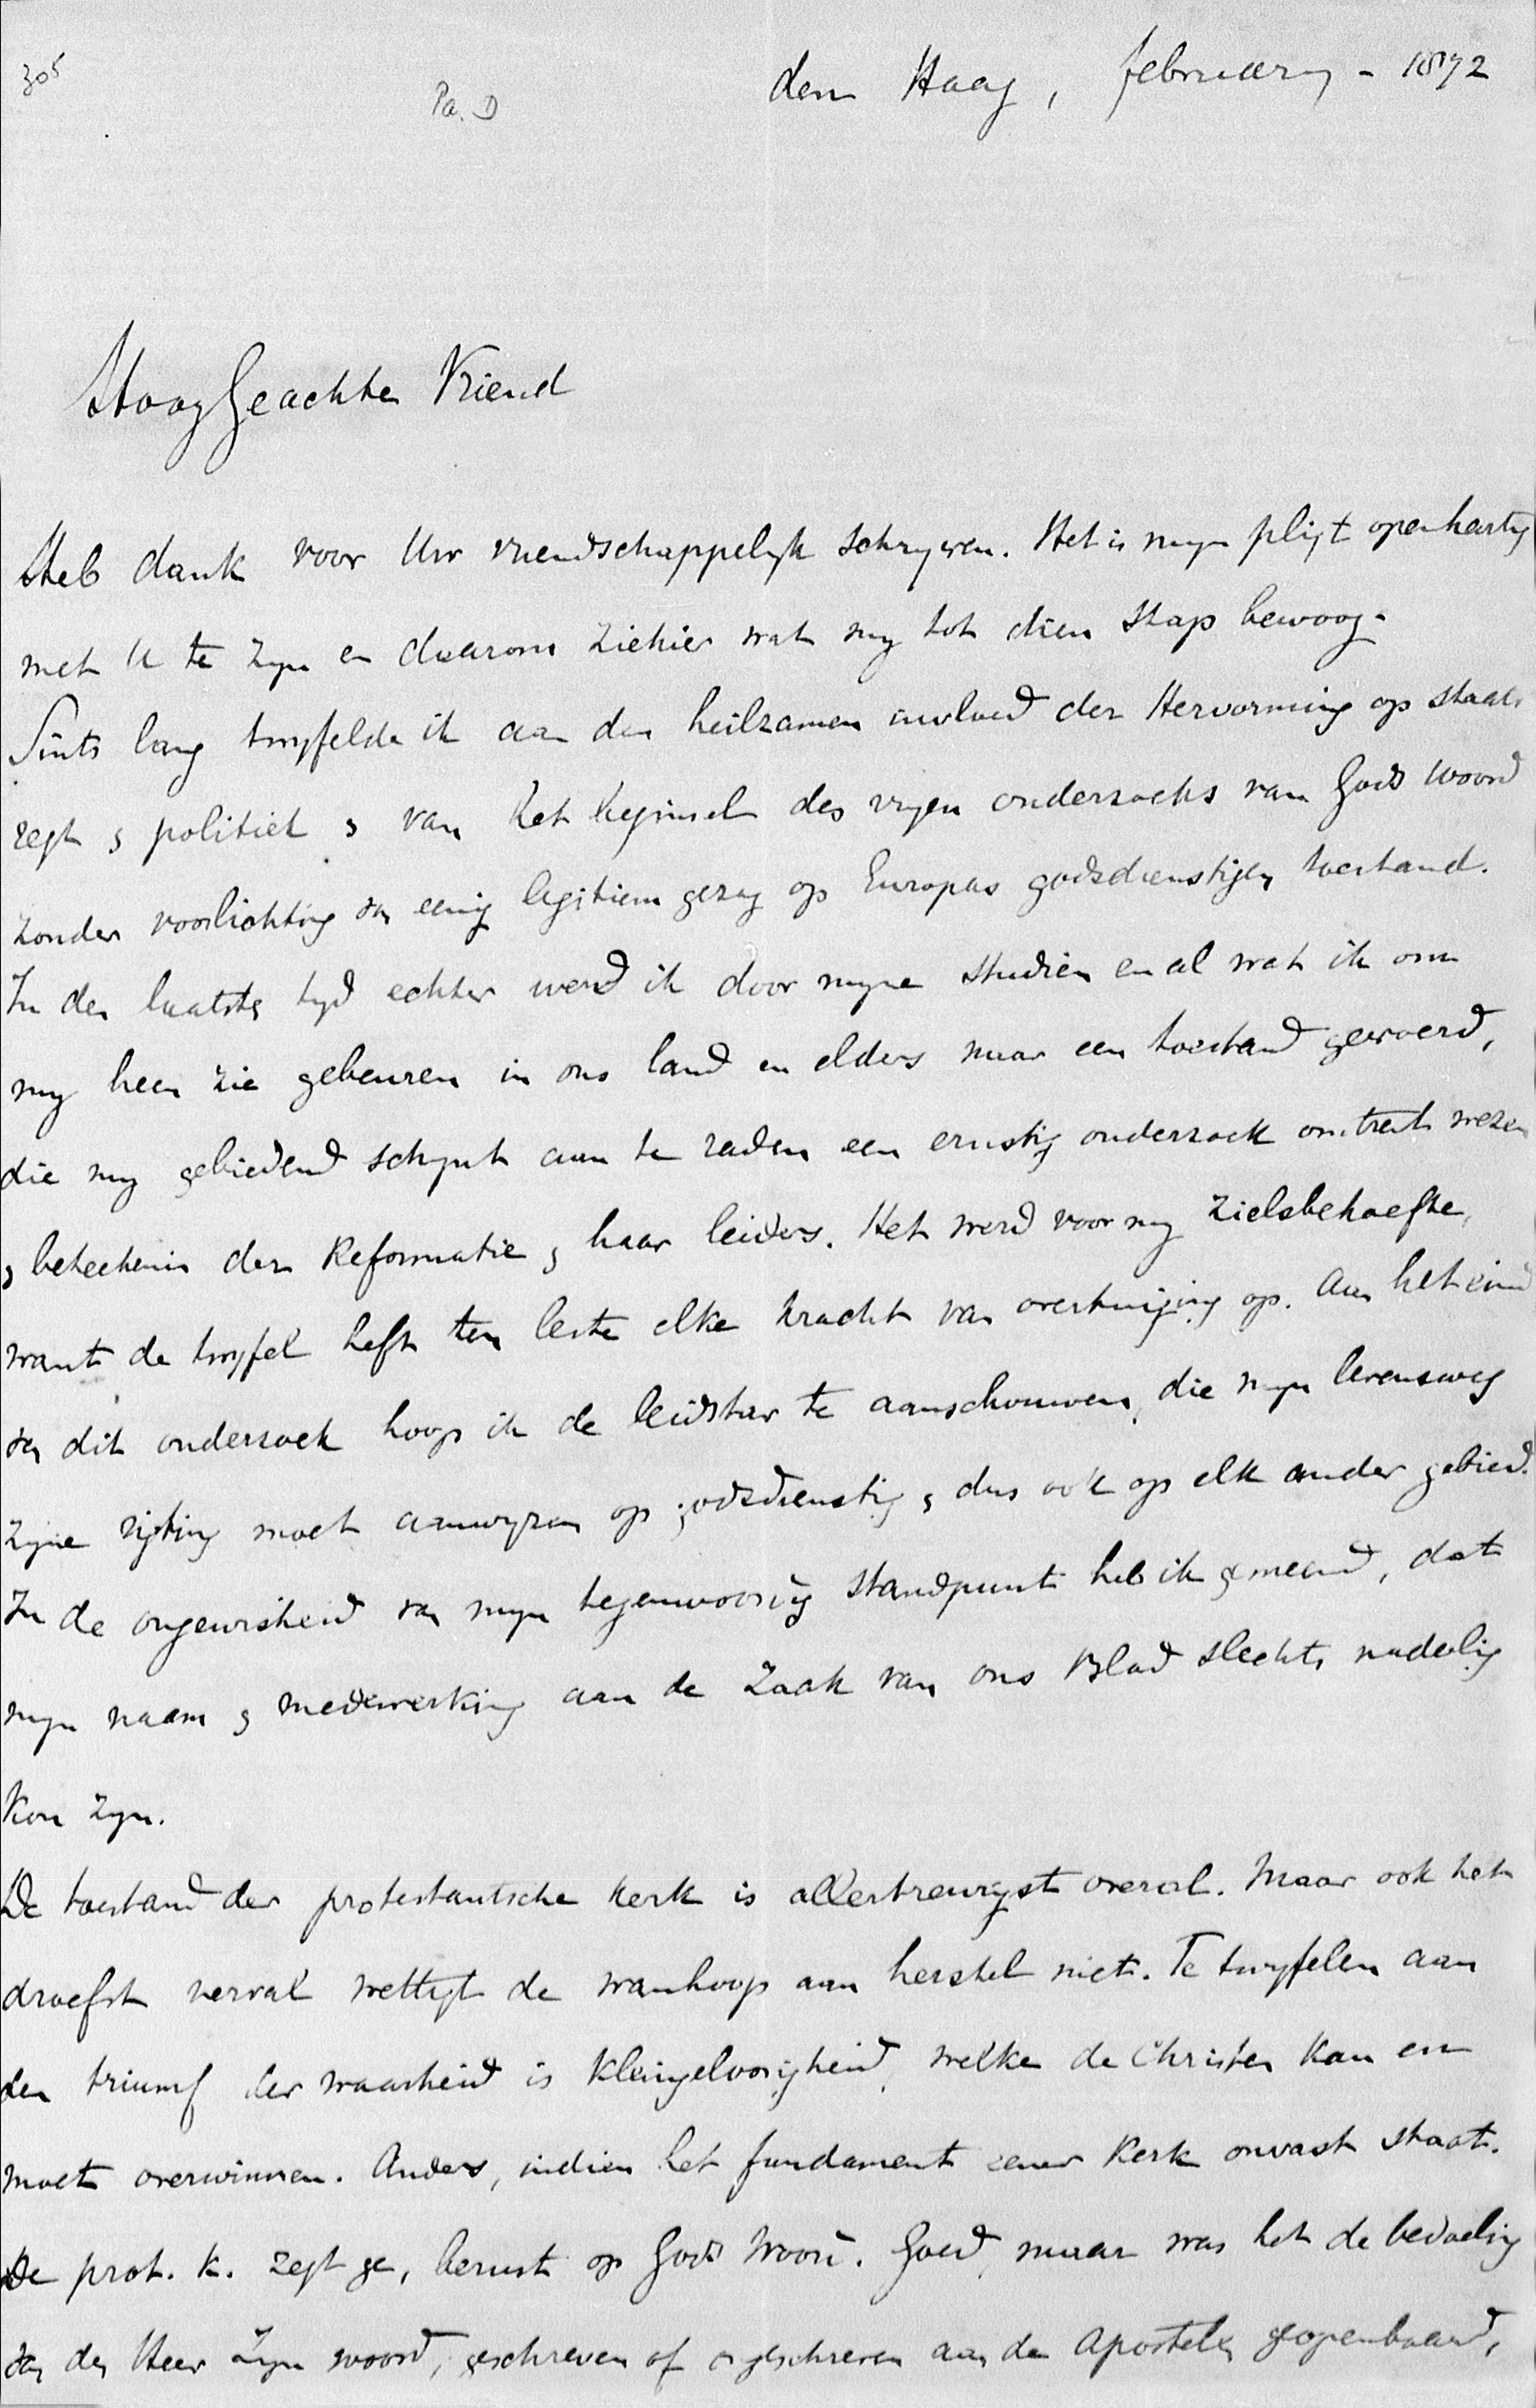 305
Pa. D
den Haag, february - 1872
HoogGeachte Vriend
Heb dank voor Uw vriendschappelyk schryven. Het is myn pligt openhartig
met U te zyn en daarom ziehier wat my tot dien stap bewoog.
Sints lang twyfelde ik aan den heilzamen invloed der Hervorming op staats
regt & politiek & van het beginsel des vryen onderzoeks van Gods woord
zonder voorlichting van eenig legitiem gezag op Europas godsdienstigen toestand.
In den laatsten tyd echter werd ik door myne studien en al wat ik om
my heen zie gebeuren in ons land en elders naar een toestand gevoerd,
die my gebiedend schynt aan te raden een ernstig onderzoek omtrent wezen
& beteekenis der Reformatie & haar leiders. Het werd voor my zielsbehoefte,
want de twyfel heft ten leste elke kracht van overtuiging op. Aan het eind
van dit onderzoek hoop ik de leidstar te aanschouwen, die myn levensweg
zyne rigting moet aanwyzen op godsdienstig & dus ook op elk ander gebied.
In de ongewisheid van myn tegenwoordig standpunt heb ik gemeend, dat
myn naam & medewerking aan de zaak van ons Blad slechts nadeelig
kon zyn.
De toestand der protestantsche kerk is allertreurigst overal. Maar ook het
droefst verval wettigt de wanhoop aan herstel niet. Te twyfelen aan
den triumf der waarheid is kleingeloovigheid, welke de Christen kan en
moet overwinnen. Anders, indien het fundament eener Kerk onvast staat.
De prot. k. zegt ge, berust op Gods Woord. Goed, maar was het de bedoeling
van den Heer Zyn woord, geschreven of ongeschreven aan de Apostelen geopenbaard,